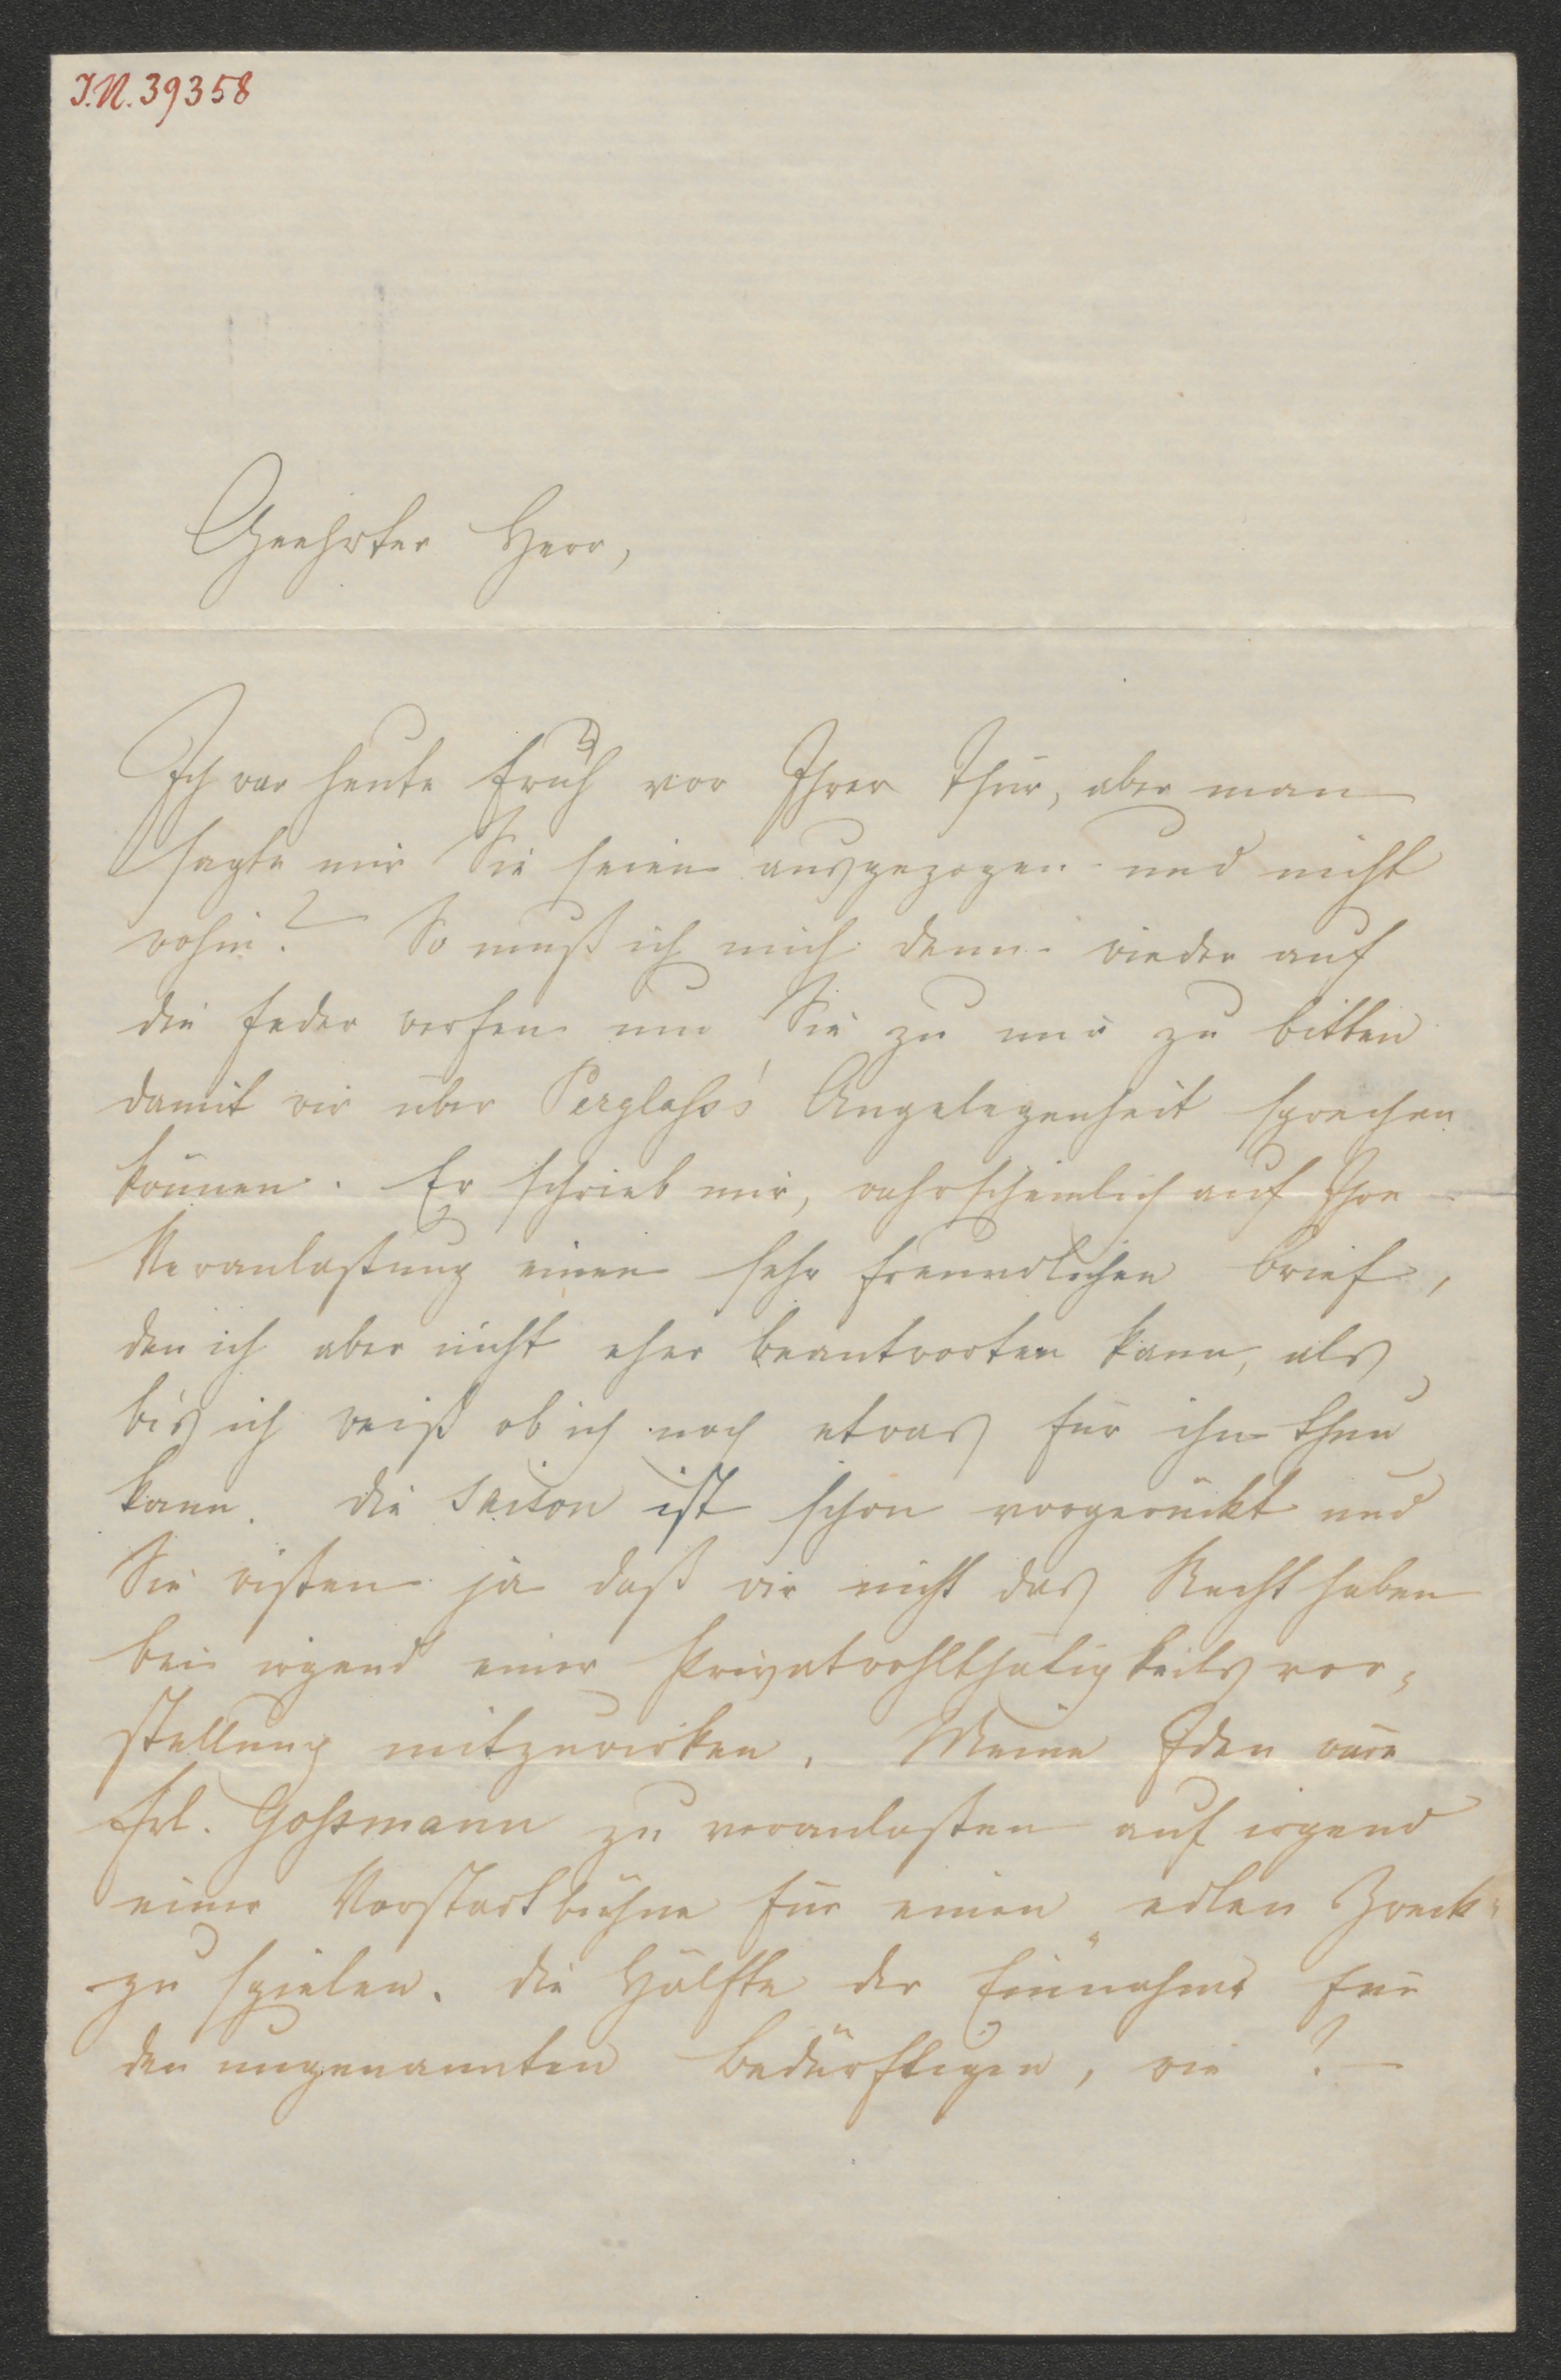 I.N. 39358
Geehrter Herr,
Ich war heute früh vor Ihrer Thür, aber man
sagte mir Sie seien ausgezogen und nicht
wohin? So muß ich mich denn wieder auf
die Feder werfen um Sie zu mir zu bitten
damit wir über Perglass's Angelegenheit sprechen
können. Er schrieb mir, wahrscheinlich auf Ihre
Veranlassung einen sehr freundlichen Brief,
den ich aber nicht eher beantworten kann, als
bis ich weiß ob ich noch etwas für ihn thun
kann. Die Saison ist schon vorgerückt und
Sie wissen ja daß wir nicht das Recht haben
bei irgend einer Privatwohlthätigkeitsvor-
stellung mitzuwirken. Meine Idee wäre
Frl. Gossmann zu veranlassen auf irgend
einer Vorstadtbühne für einen edlen Zweck
zu spielen. Die Hälfte der Einnahme für
den ungenannten Bedürftigen, wie? —